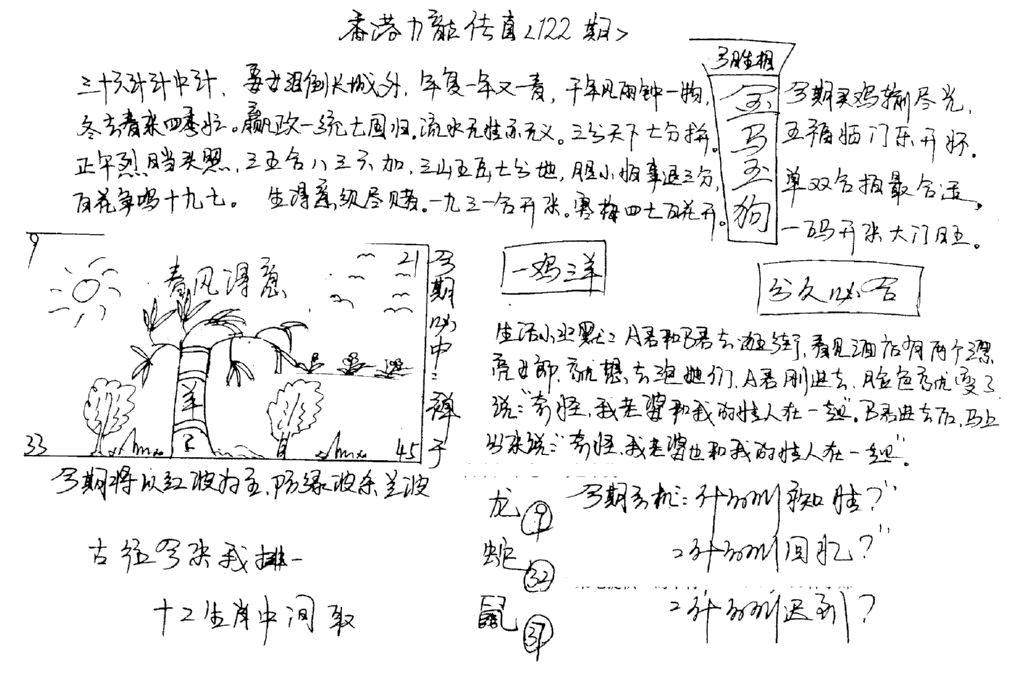 香港九龍传真<122期>
三十六计计中计、孟女泪倒长城外,年复一年又一春,千年风雨钟一物,
冬去春来四季忙。嬴政一统七国归。流水无性亦无义。三分天下七分拼。
正午烈日当头照,三五合八三六加,三山五岳七分地,胆小怕事退三分,
百花争鸣十九七。生得富级尽赌。一九三一合开来。寒梅四七百花开。
今期买鸡输尽光,
五福临门乐开怀。
单双合报最合适,
一码开来大门旺。
今胜相
金
马
玉
狗
9
21
春风得意
羊
33
45
今期必中:禅子
今期将以红波为主,防绿波杀兰波
一鸡三羊
分久必合
生活小幽默: A君和B君去逛街,看见酒店有两个漂
亮女郎,就想去泡她们,A君刚进去,脸色就变了
说:"奇怪,我老婆和我的情人在一起"。B君进去后,马上
出来说:"奇怪,我老婆也和我的情人在一起"。
龙 9
蛇 32
鼠 37
今期玄机:
回忆?"
迟到?
古径今来我排一
十二生肖中间取